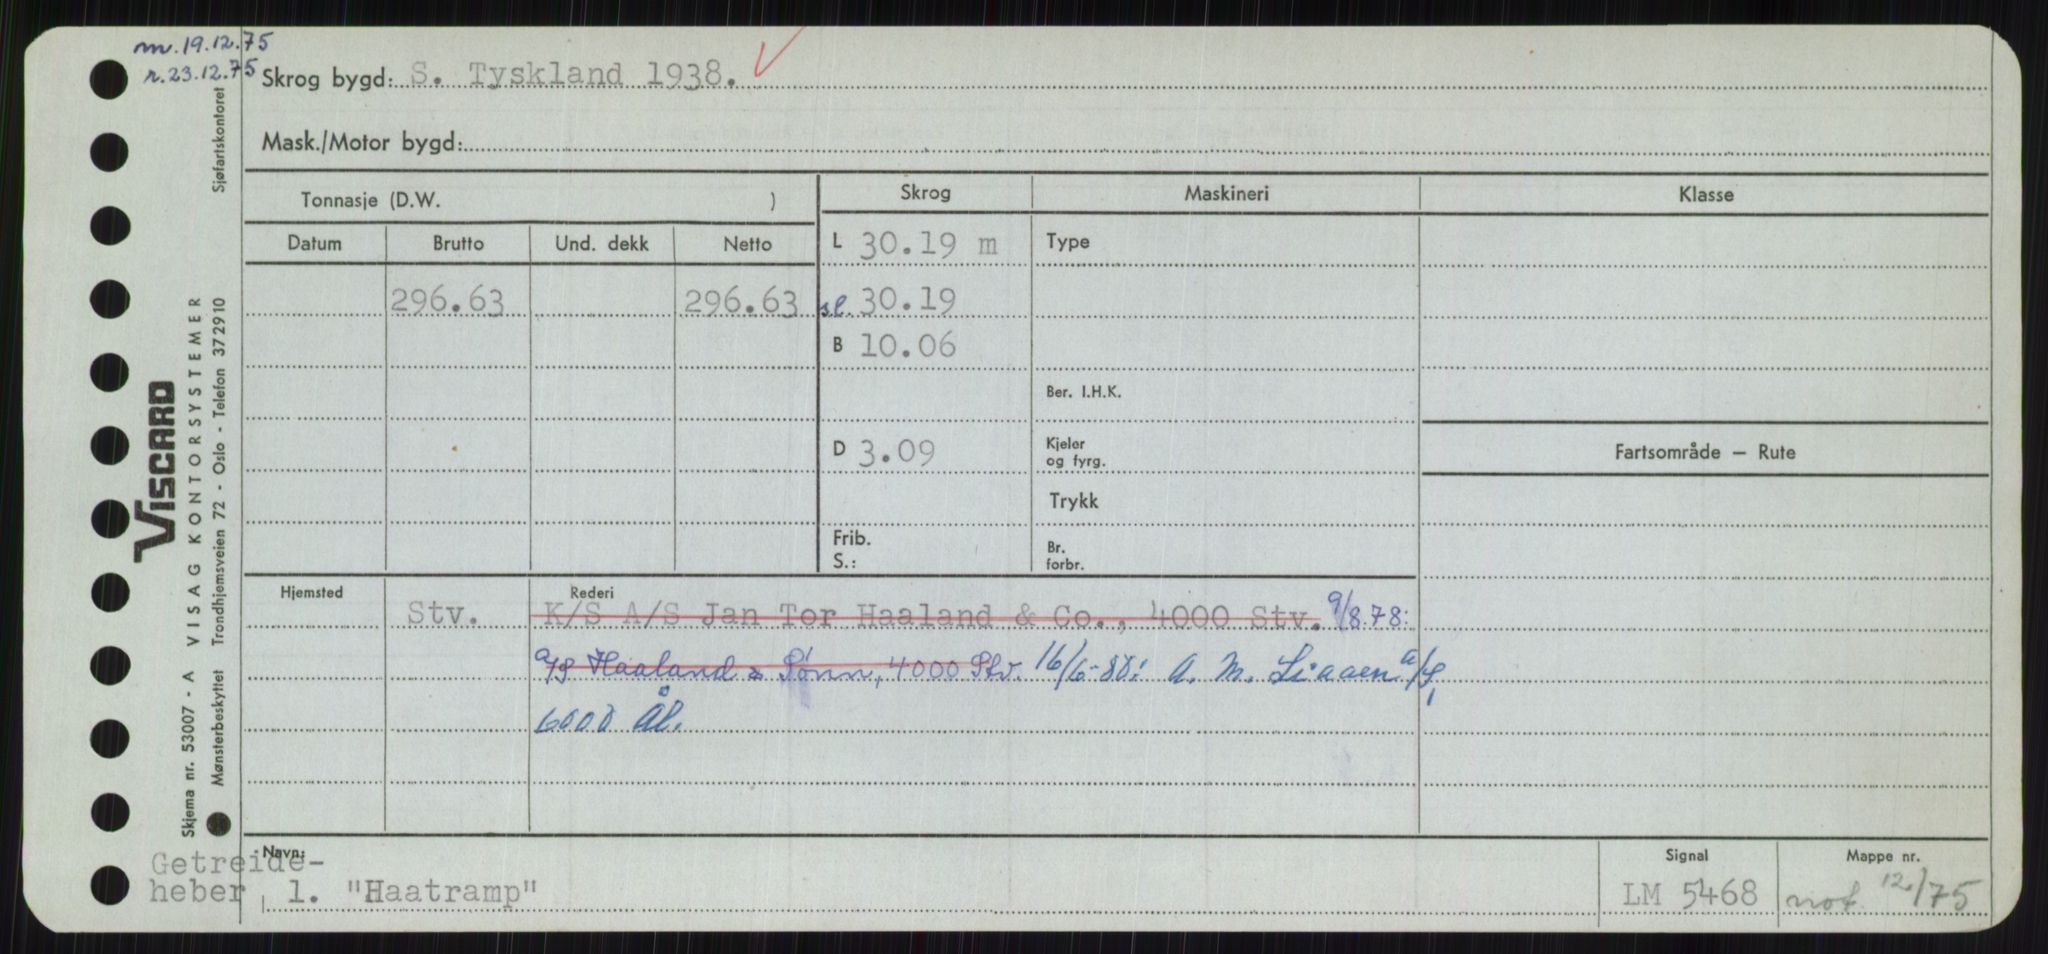 m. 19.12.75
r. 23.12.75
Skrog bygd: S. Tyskland 1938.
Mask./Motor bygd:
Tonnasje (D.W. )
Skrog
Maskineri
Klasse
Datum
Brutto
Und. dekk
Netto
L 30.19 m
Type
296.63
296.63
sl. 30.19
B 10.06
Ber. I.H.K.
D 3.09
Kjeler
og fyrg.
Fartsområde – Rute
Trykk
Frib.
S.:
Br.
forbr.
Hjemsted
Stv.
Rederi
K/S A/S Jan Tor Haaland & Co., 4000 Stv. 9/8.78:
A/S Haaland & Sønn, 4000 Stv. 16/6-88: A. M. Liaaen A/S,
6000 Ål.
Navn:
Getreide-
heber 1. "Haatramp"
Signal
LM 5468
Mappe nr.
not. 12/75
VISCARD
Skjema nr. 53007 - A VISAG KONTORSYSTEMER
Mønsterbeskyttet Trondhjemsveien 72 - Oslo - Telefon 372910 Sjøfartskontoret